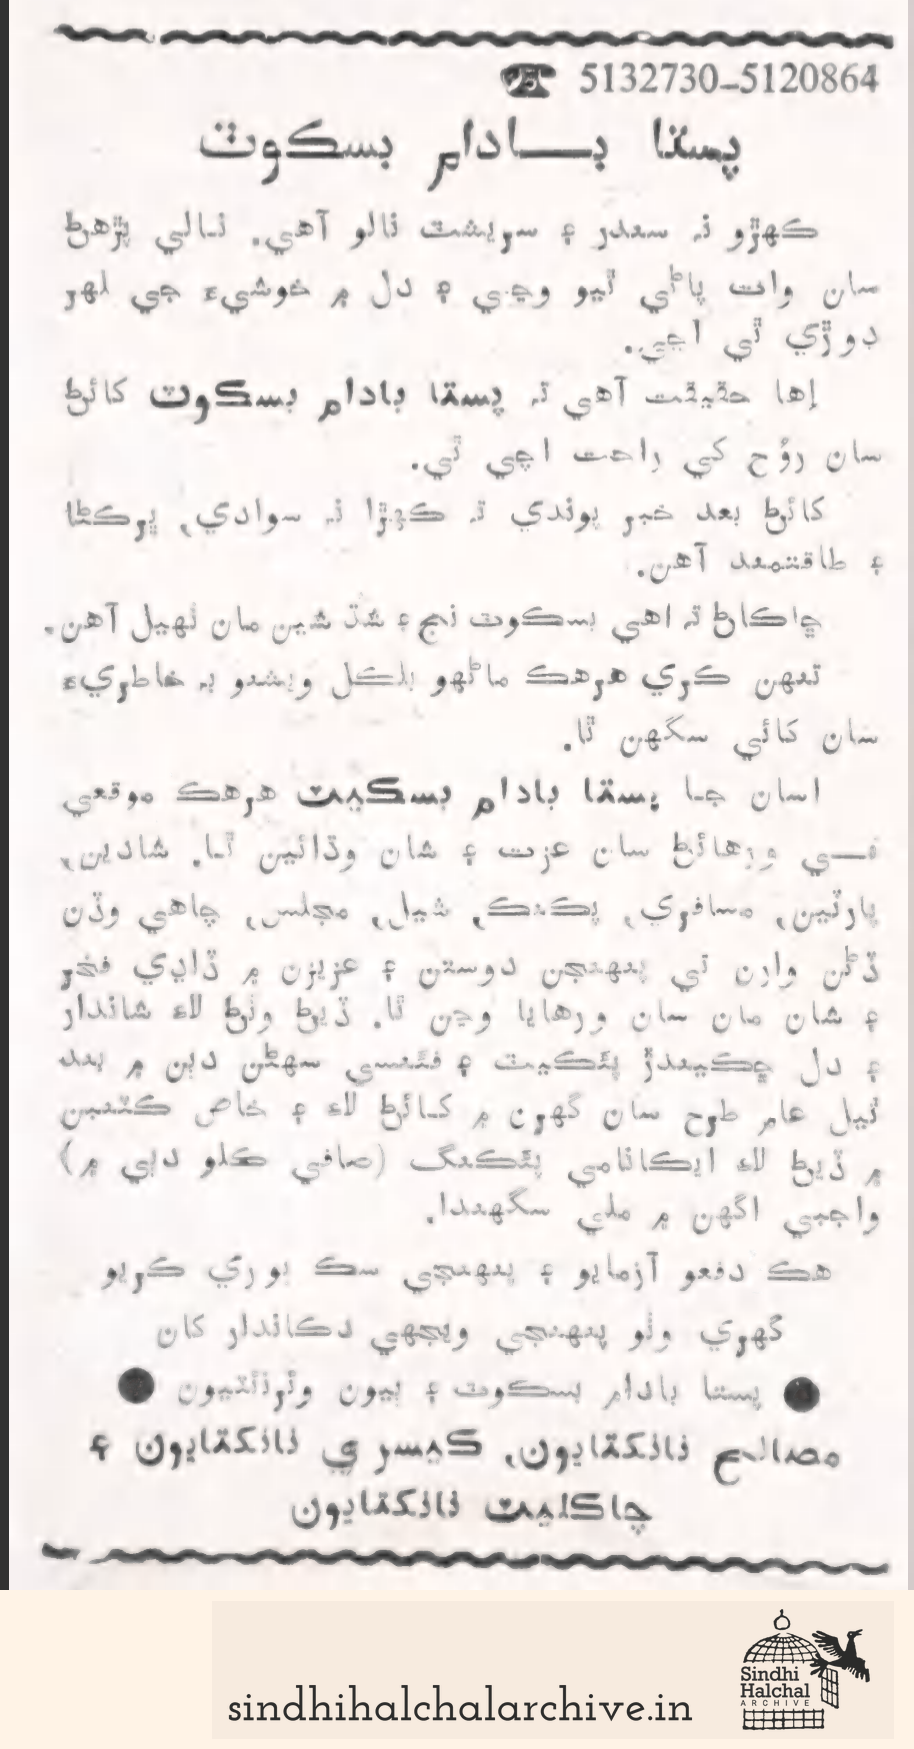 5132730-5120864
پستا بادام بسڪوٽ
ڪهڙو نہ سندر ۽ سريشٽ نالو آهي. نالي پڙهڻ
سان وات پاڻي ٿيو وڃي ۽ دل ۾ خوشيءَ جي لهر
ڊوڙي ٿي اچي.
اِها حقيقت آهي تہ پستا بادام بسڪوٽ کائڻ
سان روُح کي راحت اچي ٿي.
کائڻ بعد خبر پوندي تہ ڪهڙا نہ سوادي، ڀرڪڻا
۽ طاقتمند آهن.
ڇاڪاڻ تہ اهي بسڪوٽ نج ۽ شڌ شين مان ٺهيل آهن.
تنهن ڪري هرهڪ ماڻهو بلڪل ويشنو بہ خاطريءَ
سان کائي سگهن ٿا.
اسان جا پستا بادام بسڪيٽ هرهڪ موقعي
تـــي ورهائڻ سان عزت ۽ شان وڌائين ٿا. شادين،
پارٽين، مسافري، پڪنڪ، شيل، مجلس، چاهي وڏن
ڏڻن وارن تي پنهنجن دوستن ۽ عزيزن ۾ ڏاڍي فخر
۽ شان مان سان ورهايا وڃن ٿا. ڏيڻ وٺڻ لاءِ شاندار
۽ دل ڇڪيندڙ پئڪيٽ ۽ فئنسي سهڻن دٻن ۾ بند
ٿيل عام طرح سان گهرن ۾ کائڻ لاءِ ۽ خاص ڪٽنبن
۾ ڏيڻ لاءِ ايڪانامي پئڪنگ (صافي ڪلو دٻي ۾)
واجبي اگهن ۾ ملي سگهندا.
هڪ دفعو آزمايو ۽ پنهنجي سڪ پوري ڪريو
گهري وٺو پنهنجي ويجهي دڪاندار کان
● پستا بادام بسڪوٽ ۽ ٻيون وئرائٽيون ●
مصالح نانکتايون، ڪيسري نانکتايون ۽
چاڪليٽ نانکتايون
Sindhi
Halchal
ARCHIVE
sindhihalchalarchive.in